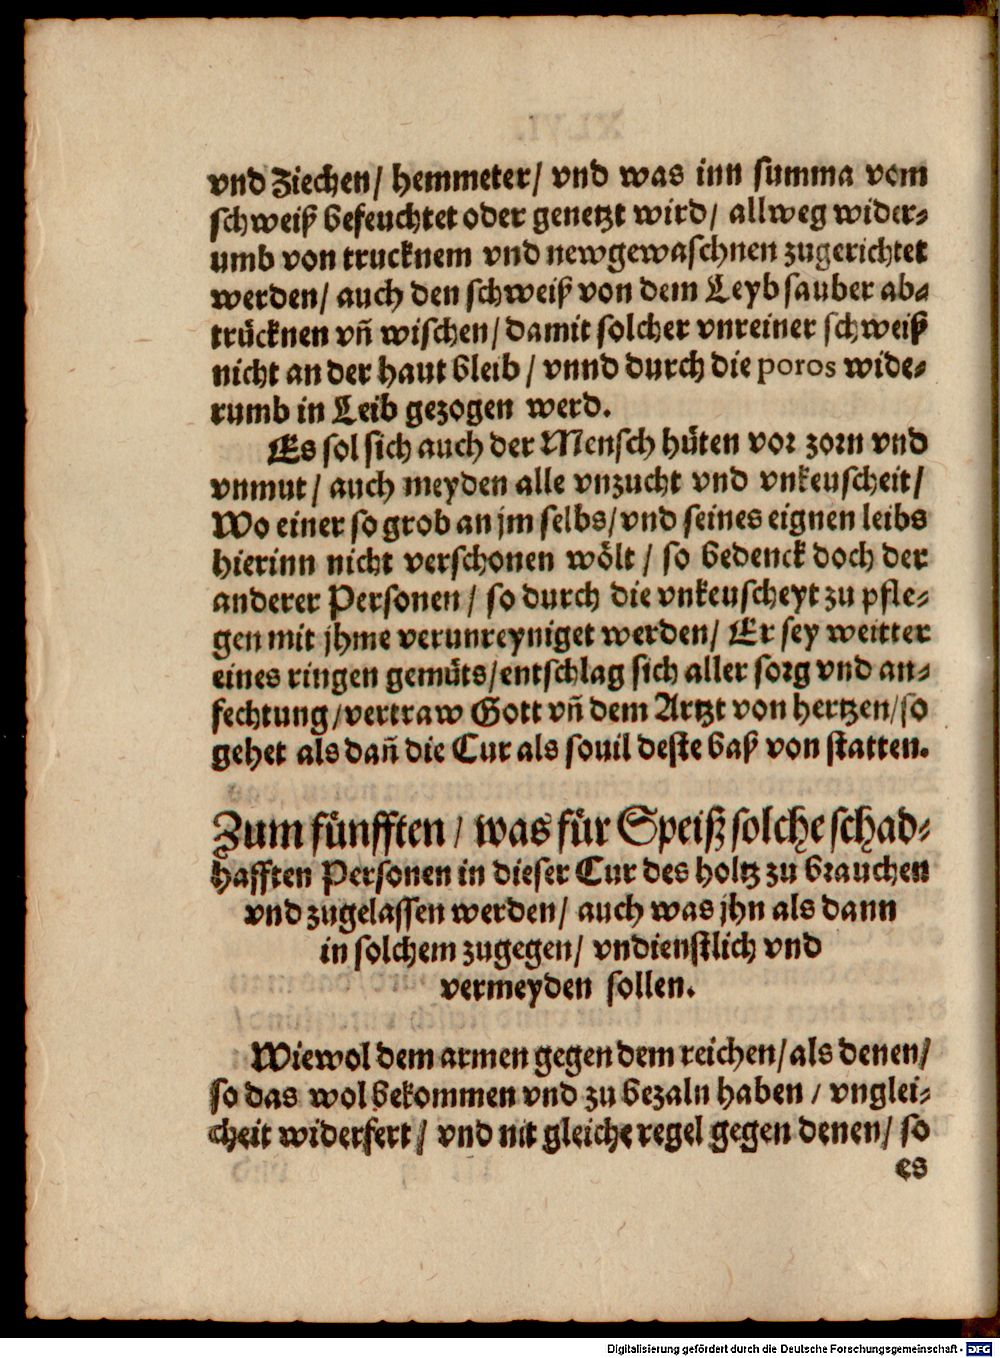 vnd Ziechen/ hemmeter/ vnd was inn summa vom
schweiß befeuchtet oder genetzt wird/ allweg wider⸗
umb von trucknem vnd newgewaschnen zugerichtet
werden/ auch den schweiß von dem Leyb sauber ab⸗
trücknen vñ wischen/ damit solcher vnreiner schweiß
nicht an der haut bleib/ vnnd durch die poros wide⸗
rumb in Leib gezogen werd.
Es sol sich auch der Mensch hüten vor zorn vnd
vnmut/ auch meyden alle vnzucht vnd vnkeuscheit/
Wo einer so grob an jm selbs/ vnd seines eignen leibs
hierinn nicht verschonen wölt/ so bedenck doch der
anderer Personen/ so durch die vnkeuscheyt zu pfle⸗
gen mit jhme verunreyniget werden/ Er sey weitter
eines ringen gemüts/ entschlag sich aller sorg vnd an⸗
fechtung/ vertraw Gott vñ dem Artzt von hertzen/ so
gehet als dañ die Cur als souil deste baß von statten.
Zum fünfften/ was für Speiß solche schad⸗
hafften Personen in dieser Cur des holtz zu brauchen
vnd zugelassen werden/ auch was jhn als dann
in solchem zugegen/ vndienstlich vnd
vermeyden sollen.
Wiewol dem armen gegen dem reichen/ als denen/
so das wol bekommen vnd zu bezaln haben/ vnglei⸗
cheit widerfert/ vnd nit gleiche regel gegen denen/ so
es
Digitalisierung gefördert durch die Deutsche Forschungsgemeinschaft - DFG